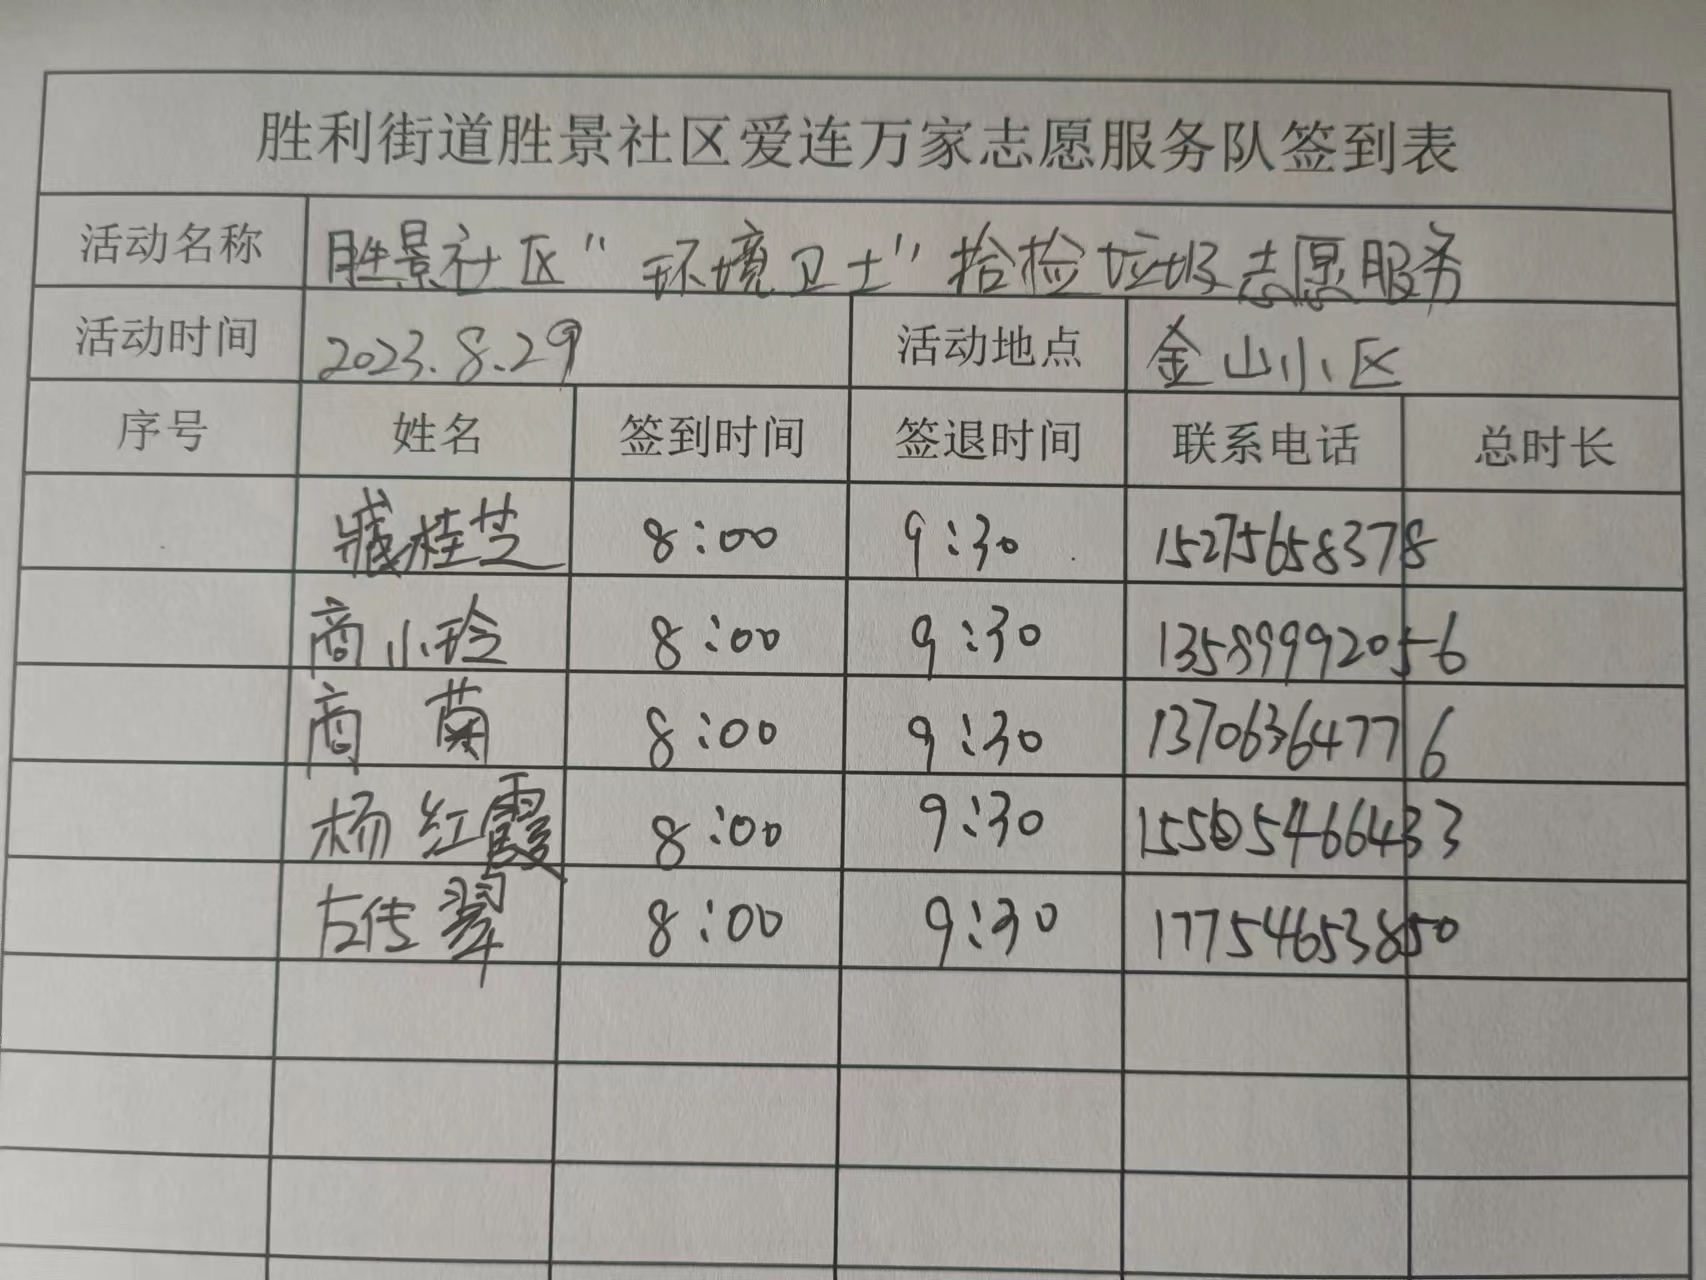 胜利街道胜景社区爱连万家志愿服务队签到表
活动名称 胜景社区“环境卫士”拾捡垃圾志愿服务
活动时间 2023.8.29 活动地点 金山小区
序号 姓名 签到时间 签退时间 联系电话 总时长
臧桂芝 8:00 9:30 15275658378
商小玲 8:00 9:30 13589992056
商菊 8:00 9:30 13706364776
杨红霞 8:00 9:30 15505466433
左传翠 8:00 9:30 17754653850